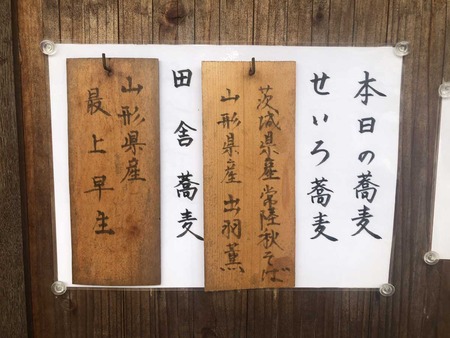 本日の蕎麦
せいろ蕎麦
茨城県産常陸秋そば
山形県産出羽薫
田舎蕎麦
山形県産
最上早生